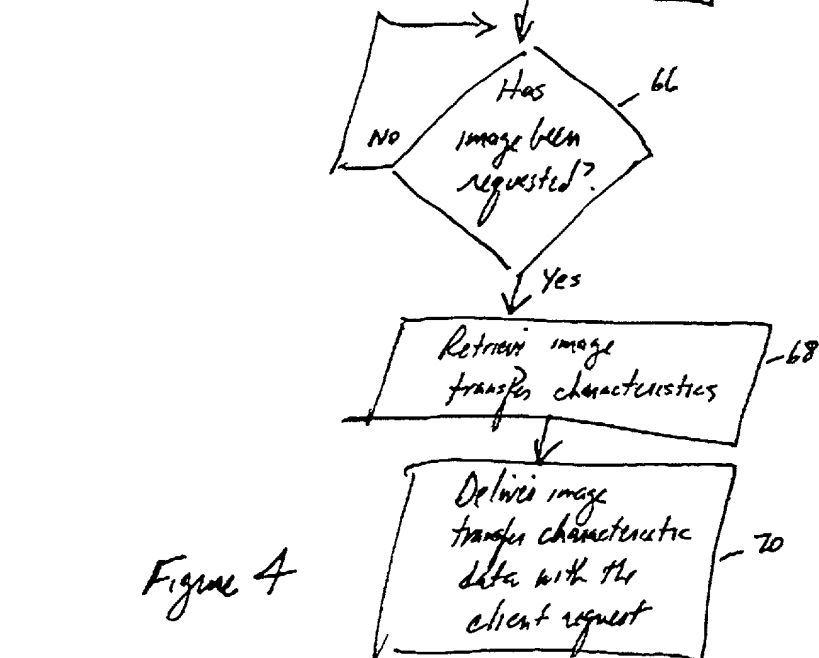 66
Has
image been
requested?
No
Yes
Retrieve image
transfer characteristics
68
Deliver image
transfer characteristic
data with the
client request
70
Figure 4